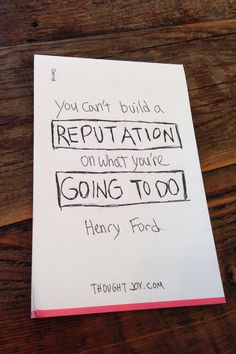 You can't build a
REPUTATION
on what you're
GOING TO DO
Henry Ford
THOUGHTJOY.COM